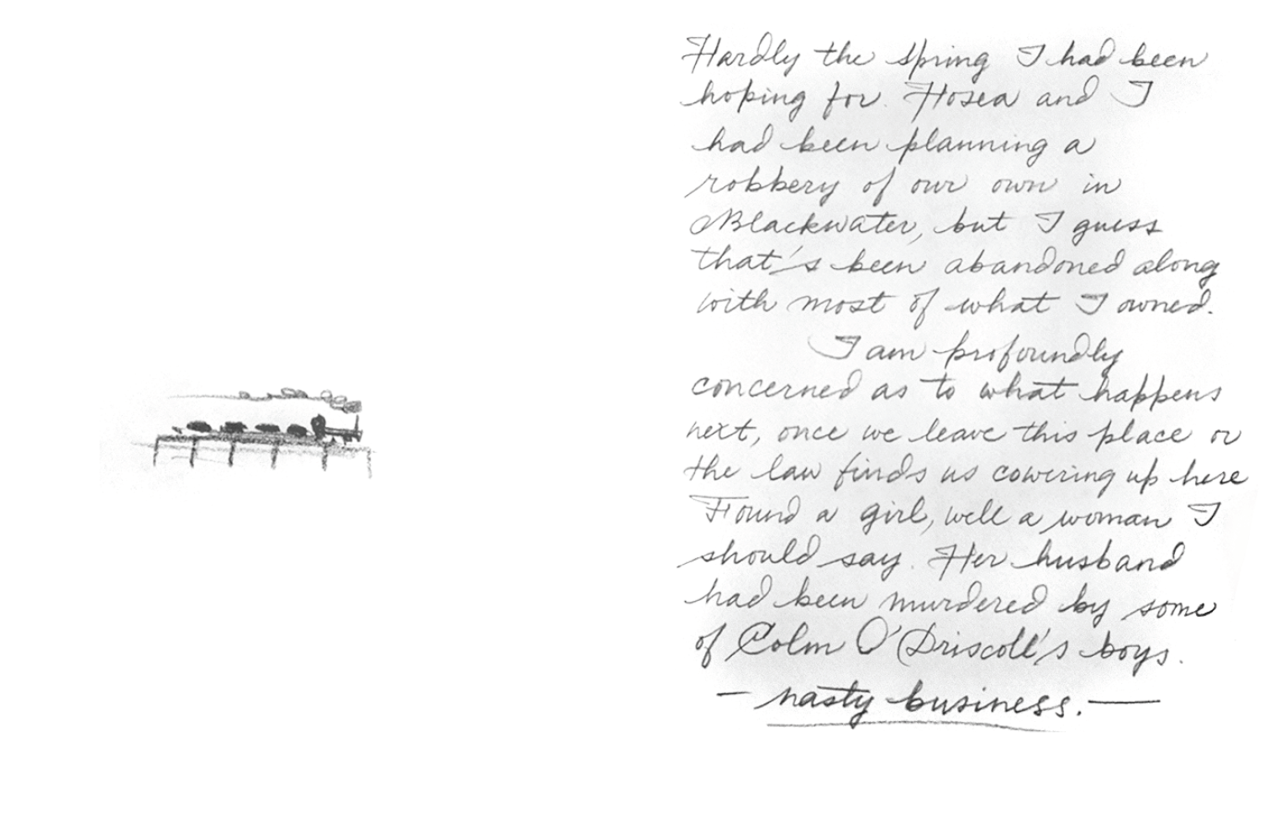 Hardly the spring I had been
hoping for. Hosea and I
had been planning a
robbery of our own in
Blackwater, but I guess
that's been abandoned along
with most of what I owned.
I am profoundly
concerned as to what happens
next, once we leave this place or
the law finds us cowering up here
Found a girl, well a woman I
should say. Her husband
had been murdered by some
of Colm O'Driscoll's boys.
— nasty business. —